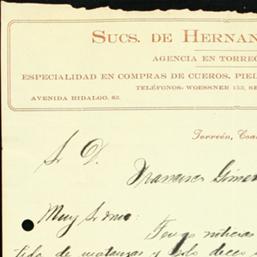 SUCS. DE HERNAN
AGENCIA EN TORREO
ESPECIALIDAD EN COMPRAS DE CUEROS, PIEL
TELÉFONOS: WOESSNER 153, SE
AVENIDA HIDALGO, 83.
Torreón, Coa
S. D.
Francisco Gomez
Muy S. mio:
Tengo noticias